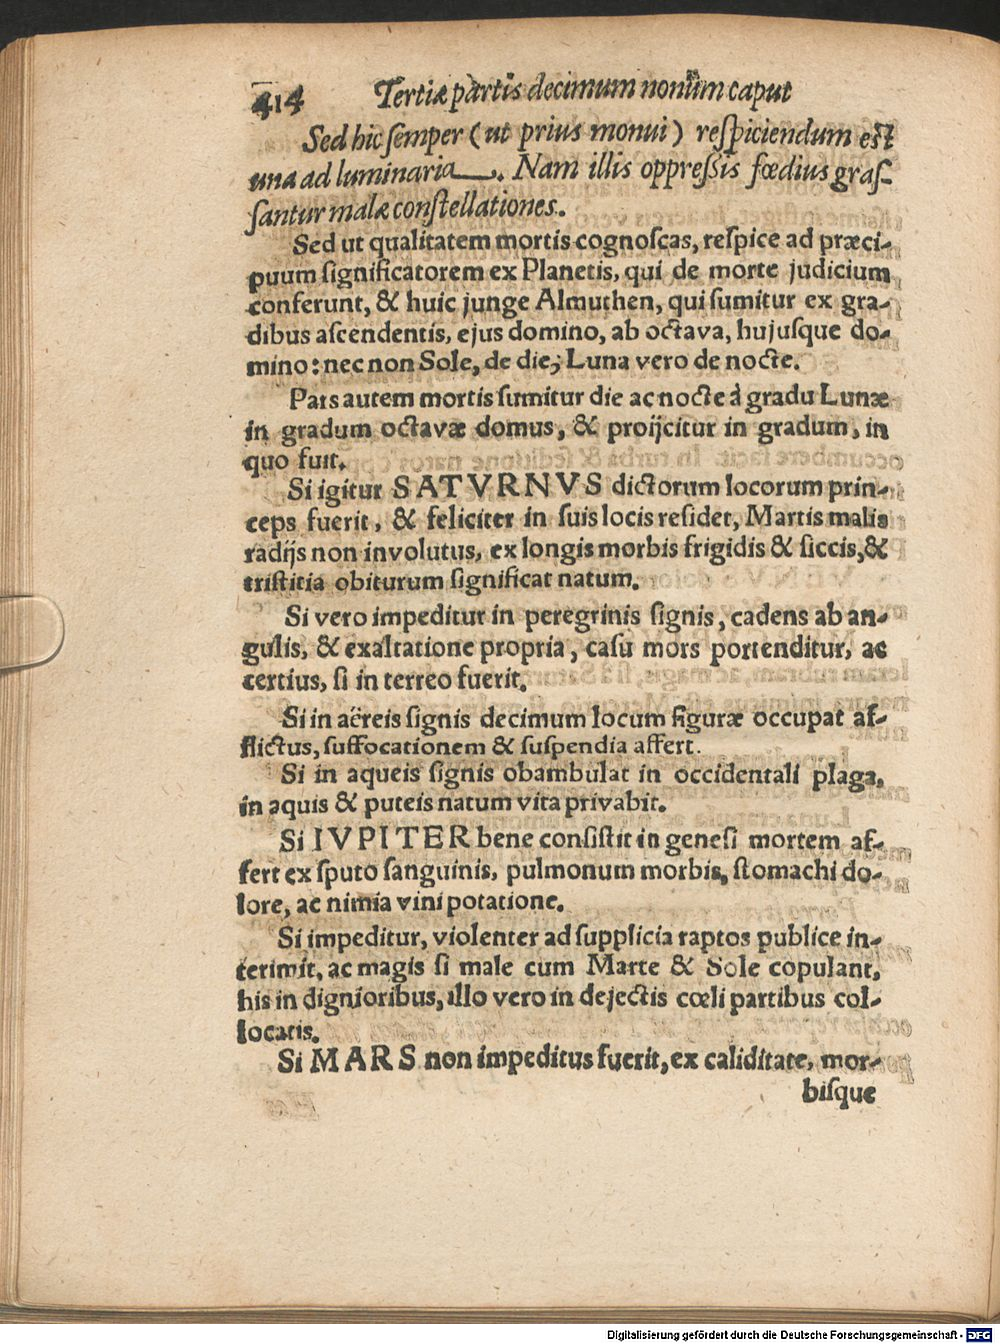 414 Tertiæ partis decimum nonum caput
Sed hic semper (ut prius monui) respiciendum est
una ad luminaria. Nam illis oppressis fœdius gras-
santur malæ constellationes.
Sed ut qualitatem mortis cognoscas, respice ad præci-
puum significatorem ex Planetis, qui de morte judicium
conferunt, & huic junge Almuthen, qui sumitur ex gra-
dibus ascendentis, ejus domino, ab octava, hujusque do-
mino: nec non Sole, de die, Luna vero de nocte.
Pars autem mortis sumitur die ac nocte à gradu Lunæ
in gradum octavæ domus, & proijcitur in gradum, in
quo fuit.
Si igitur SATVRNVS dictorum locorum prin-
ceps fuerit, & feliciter in suis locis residet, Martis malis
radijs non involutus, ex longis morbis frigidis & siccis, &
tristitia obiturum significat natum.
Si vero impeditur in peregrinis signis, cadens ab an-
gulis, & exaltatione propria, casu mors portenditur, ac
certius, si in terreo fuerit.
Si in aëreis signis decimum locum figuræ occupat af-
flictus, suffocationem & suspendia affert.
Si in aqueis signis obambulat in occidentali plaga,
in aquis & puteis natum vita privabit.
Si IVPITER bene consistit in genesi mortem af-
fert ex sputo sanguinis, pulmonum morbis, stomachi do-
lore, ac nimia vini potatione.
Si impeditur, violenter ad supplicia raptos publice in-
terimit, ac magis si male cum Marte & Sole copulant,
his in dignioribus, illo vero in dejectis cœli partibus col-
locatis.
Si MARS non impeditus fuerit, ex caliditate, mor-
bisque
Digitalisierung gefördert durch die Deutsche Forschungsgemeinschaft - DFG